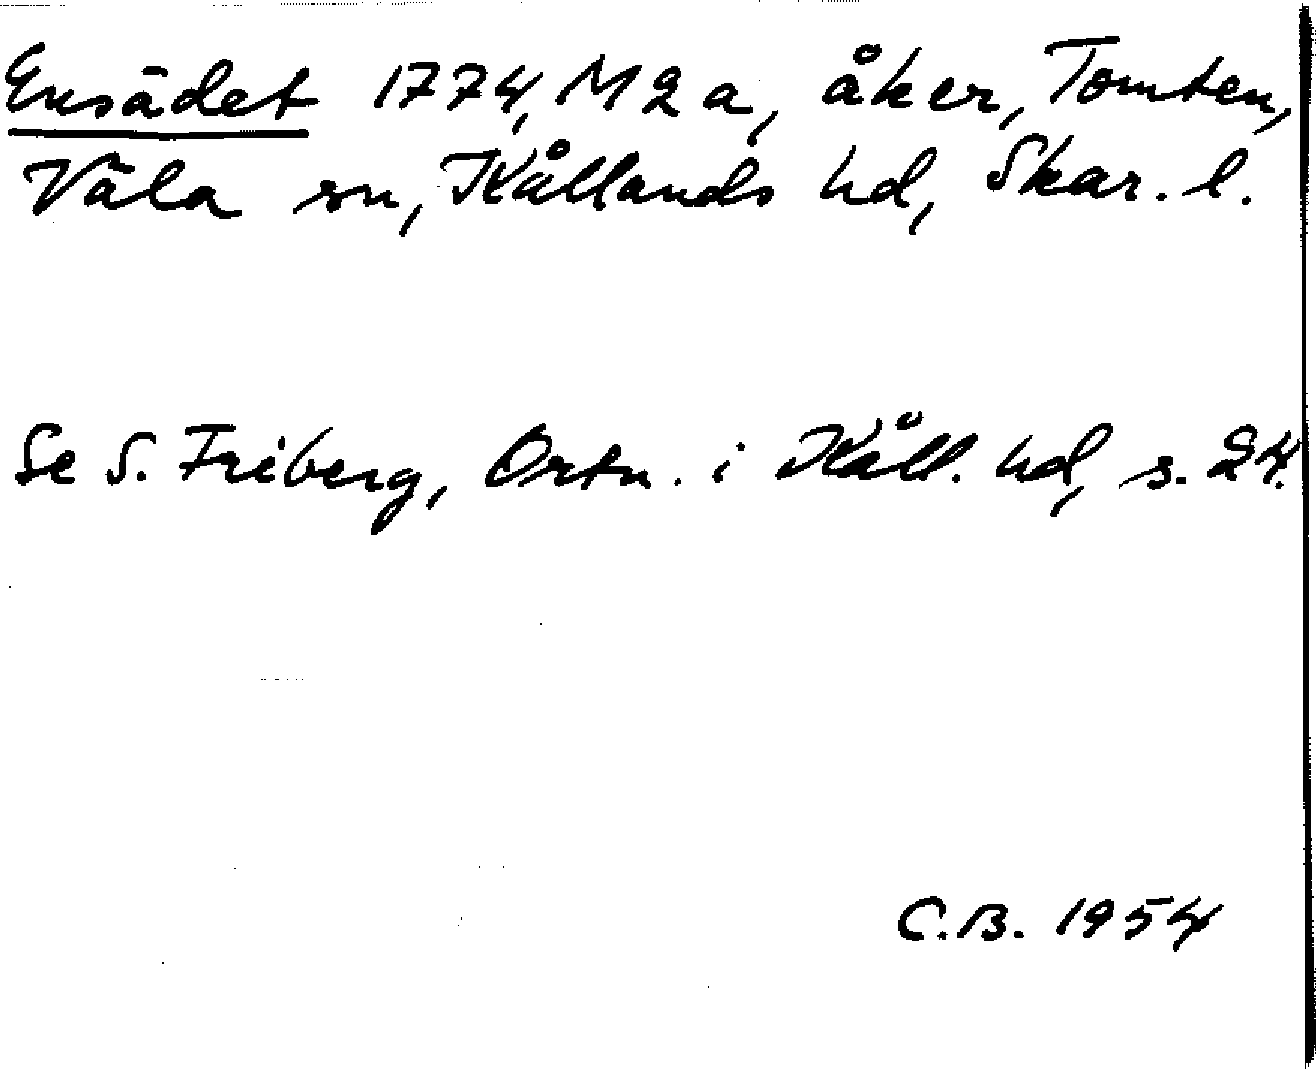 Ensädet 1774, M2a, åker, Tomten,
Väla sn, Kållands hd, Skar. l.
Se S. Friberg, Ortn. i Kåll. hd, s. 24.
C.B. 1954